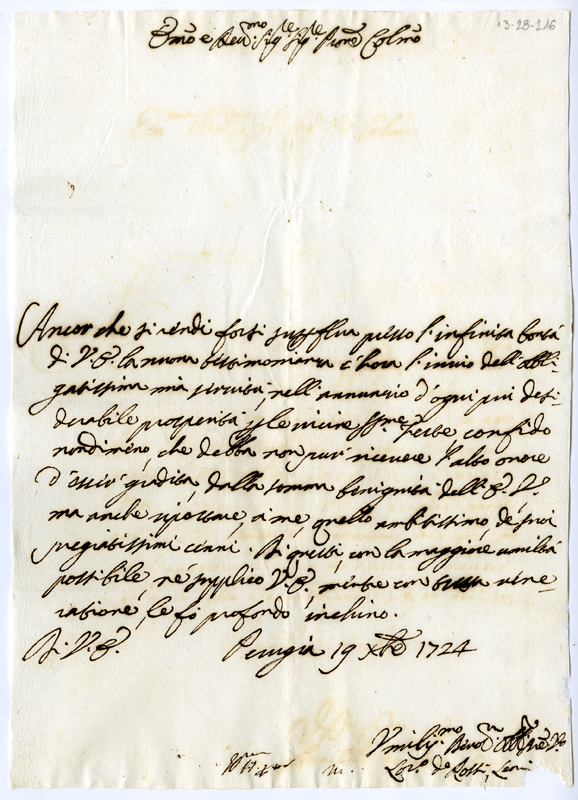 3-28-216
Emo e Reu.mo Sig.re Sig.re Prone Colmo
Ancor che si rendi forsi supflua presso l'infinita bontà
di V. E. la nuova testimonianza c'hora l'invio dell'obli-
gatissima mia servitù nell'annunzio d'ogni più desi-
derabile prosperità p le vicine SSme Feste, confido
nondimeno, che debba non pur' ricevere l'alto onore
d'esser gradita dalla somma benignità dell'E. V.
ma anche riportare à me quello ambitissimo de suoi
pregiatissimi cenni. Di questi con la maggiore umiltà
possibile nè supplico V. E. mentre con tutta vene-
ratione le fo profondo inchino.
Di V. E. Perugia 19 Xbre 1724
Vmiliss.mo
de Rossi